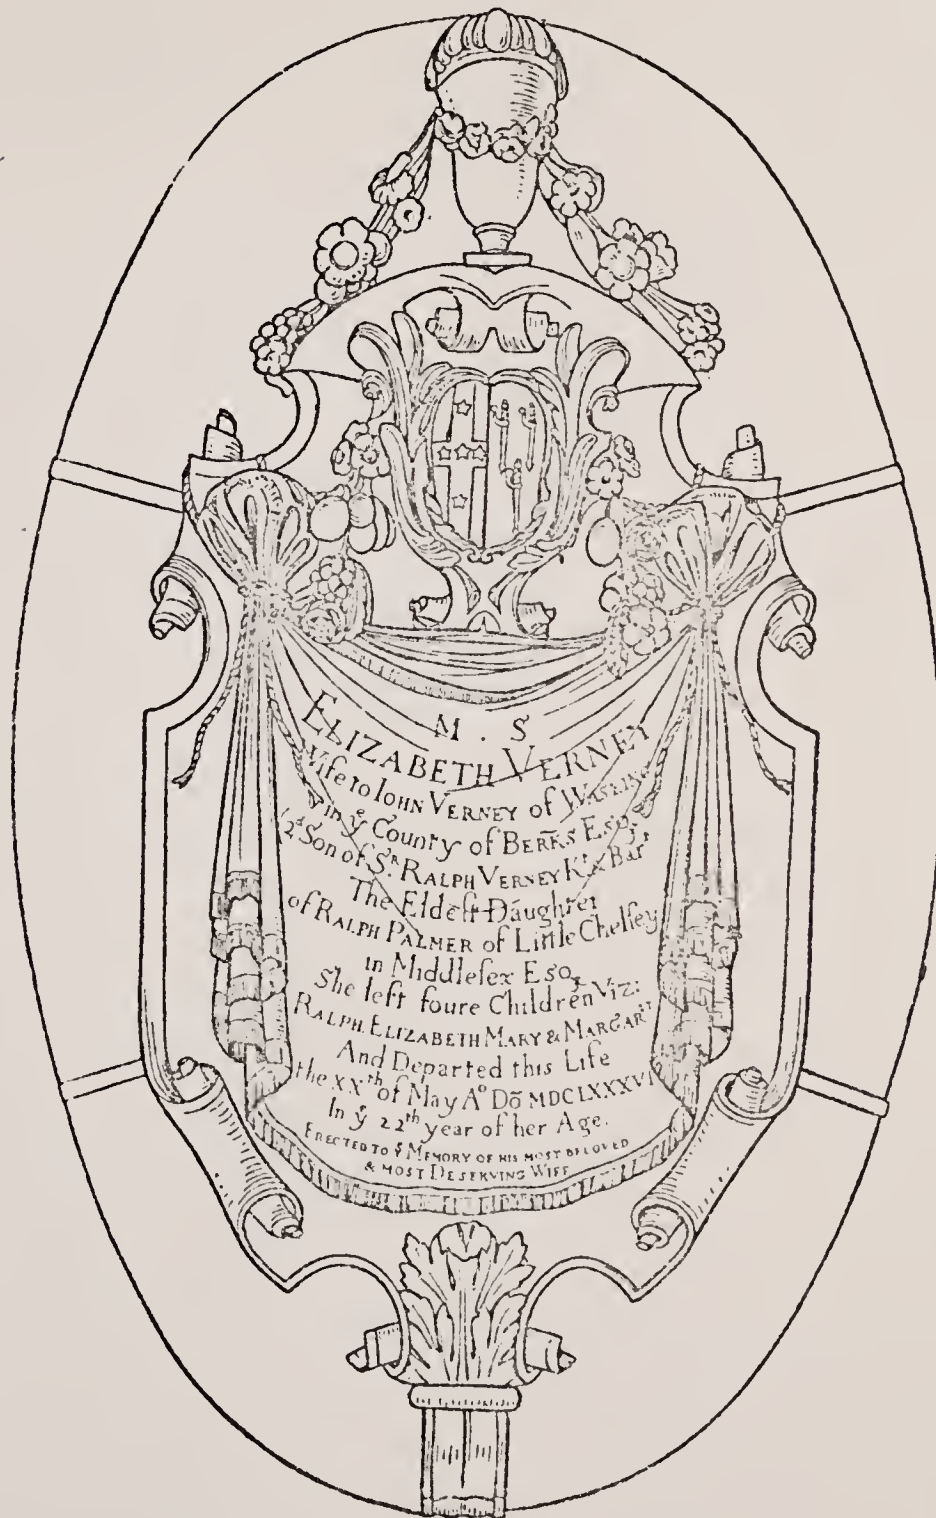 M . S
ELIZABETH VERNEY
Wife to IOHN VERNEY of WASEING
in yͤ County of BERKS ESQ
2ᵈ Son of Sᴿ. RALPH VERNEY Kᵗ & Barᵗ
The Eldeſt Daughter
of RALPH PALMER of Little Chelſey
in Middleſex ESQ
She left foure Children Viz:
RALPH ELIZABETH MARY & MARGARᵗᵗ
And Departed this Life
the XXᵗʰ of May Aᵒ Dō MDCLXXXVI
In yͤ 22ᵗʰ year of her Age.
ERECTED TO yͤ MEMORY OF HIS MOST BELOVED
& MOST DESERVING WIFE